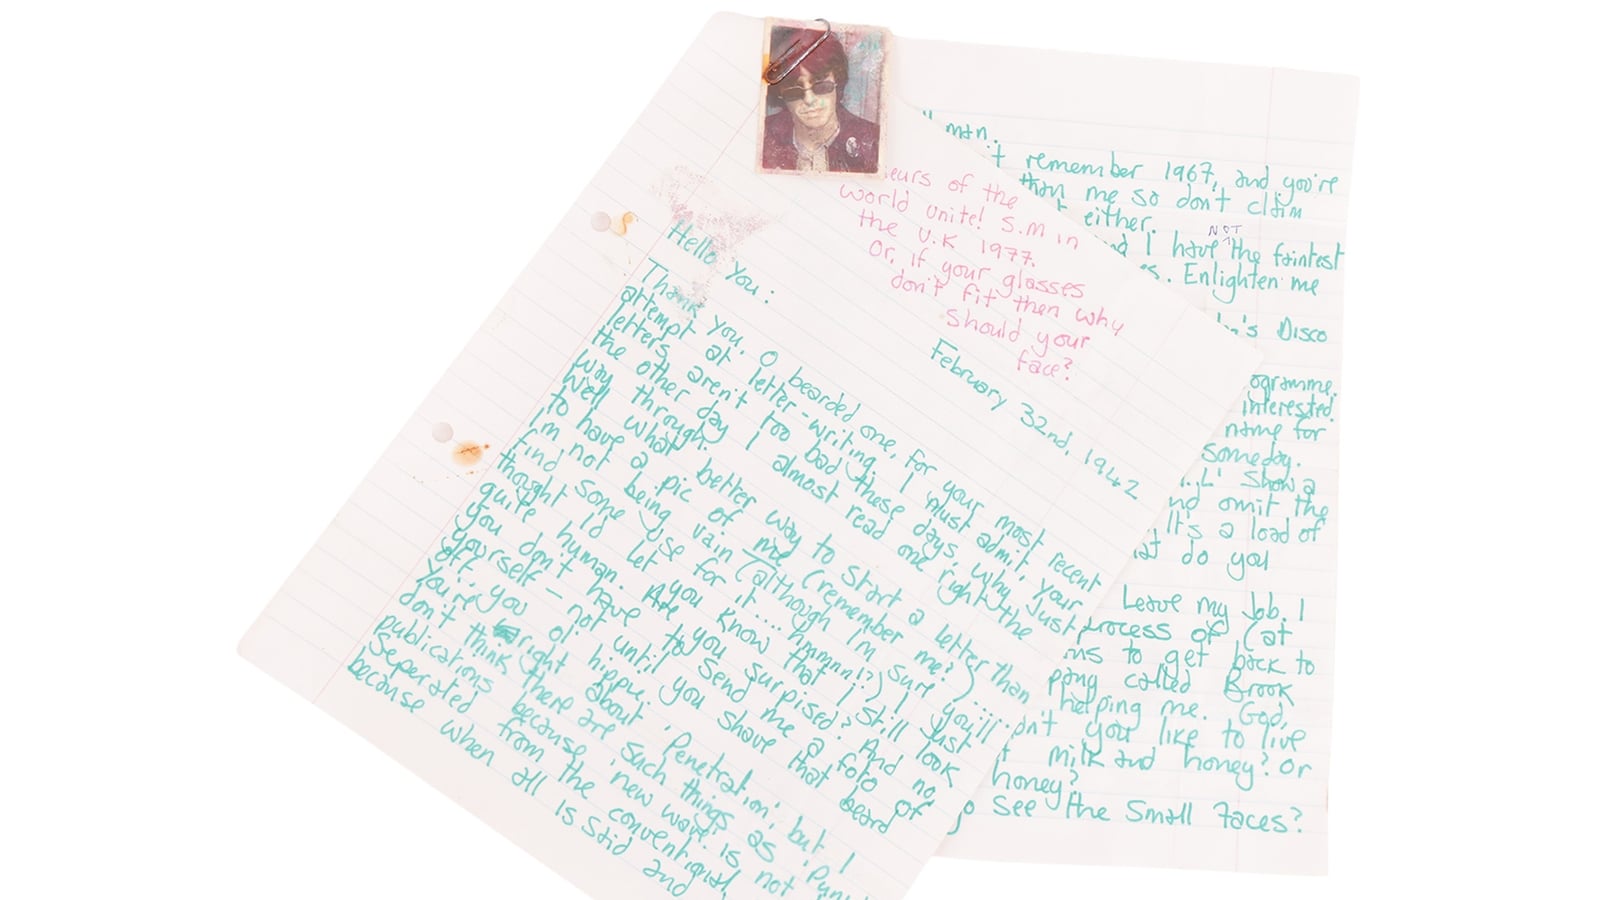 eurs of the
world unite! S.M in
the U.K 1977.
Or, if your glasses
don't fit then why
should your
face?
February 32nd, 1942
Hello You:
Thank you, O bearded one, for your most recent
attempt at letter-writing. I must admit, your
letters aren't too bad these days, why, just
the other day I almost read one right the
way through.
Well what better way to start a letter than
to have a pic of me (remember me?)....
I'm not being vain (although I'm sure you'll
find some use for it....hmmnn!?) I just
thought I'd let you know that I still look
quite human. Are you surprised? And no,
you don't have to send me a foto of
yourself - not until you shave that beard
off..you ol' hippy.
You're right about 'Penetration', but I
don't think there are such things as 'Punk
publications because 'new wave' is not
seperated from the conventional,
because when all is said and
man.
remember 1967, and you're
than me so don't claim
either.
I have NOT the faintest
Enlighten me
Disco
ogramme.
interested
name for
someday.
Show a
omit the
It's a load of
do you
Leave my Job. I
process of (at
to get back to
called Brook
helping me. God,
you like to live
milk and honey? Or
honey?
see the Small Faces?